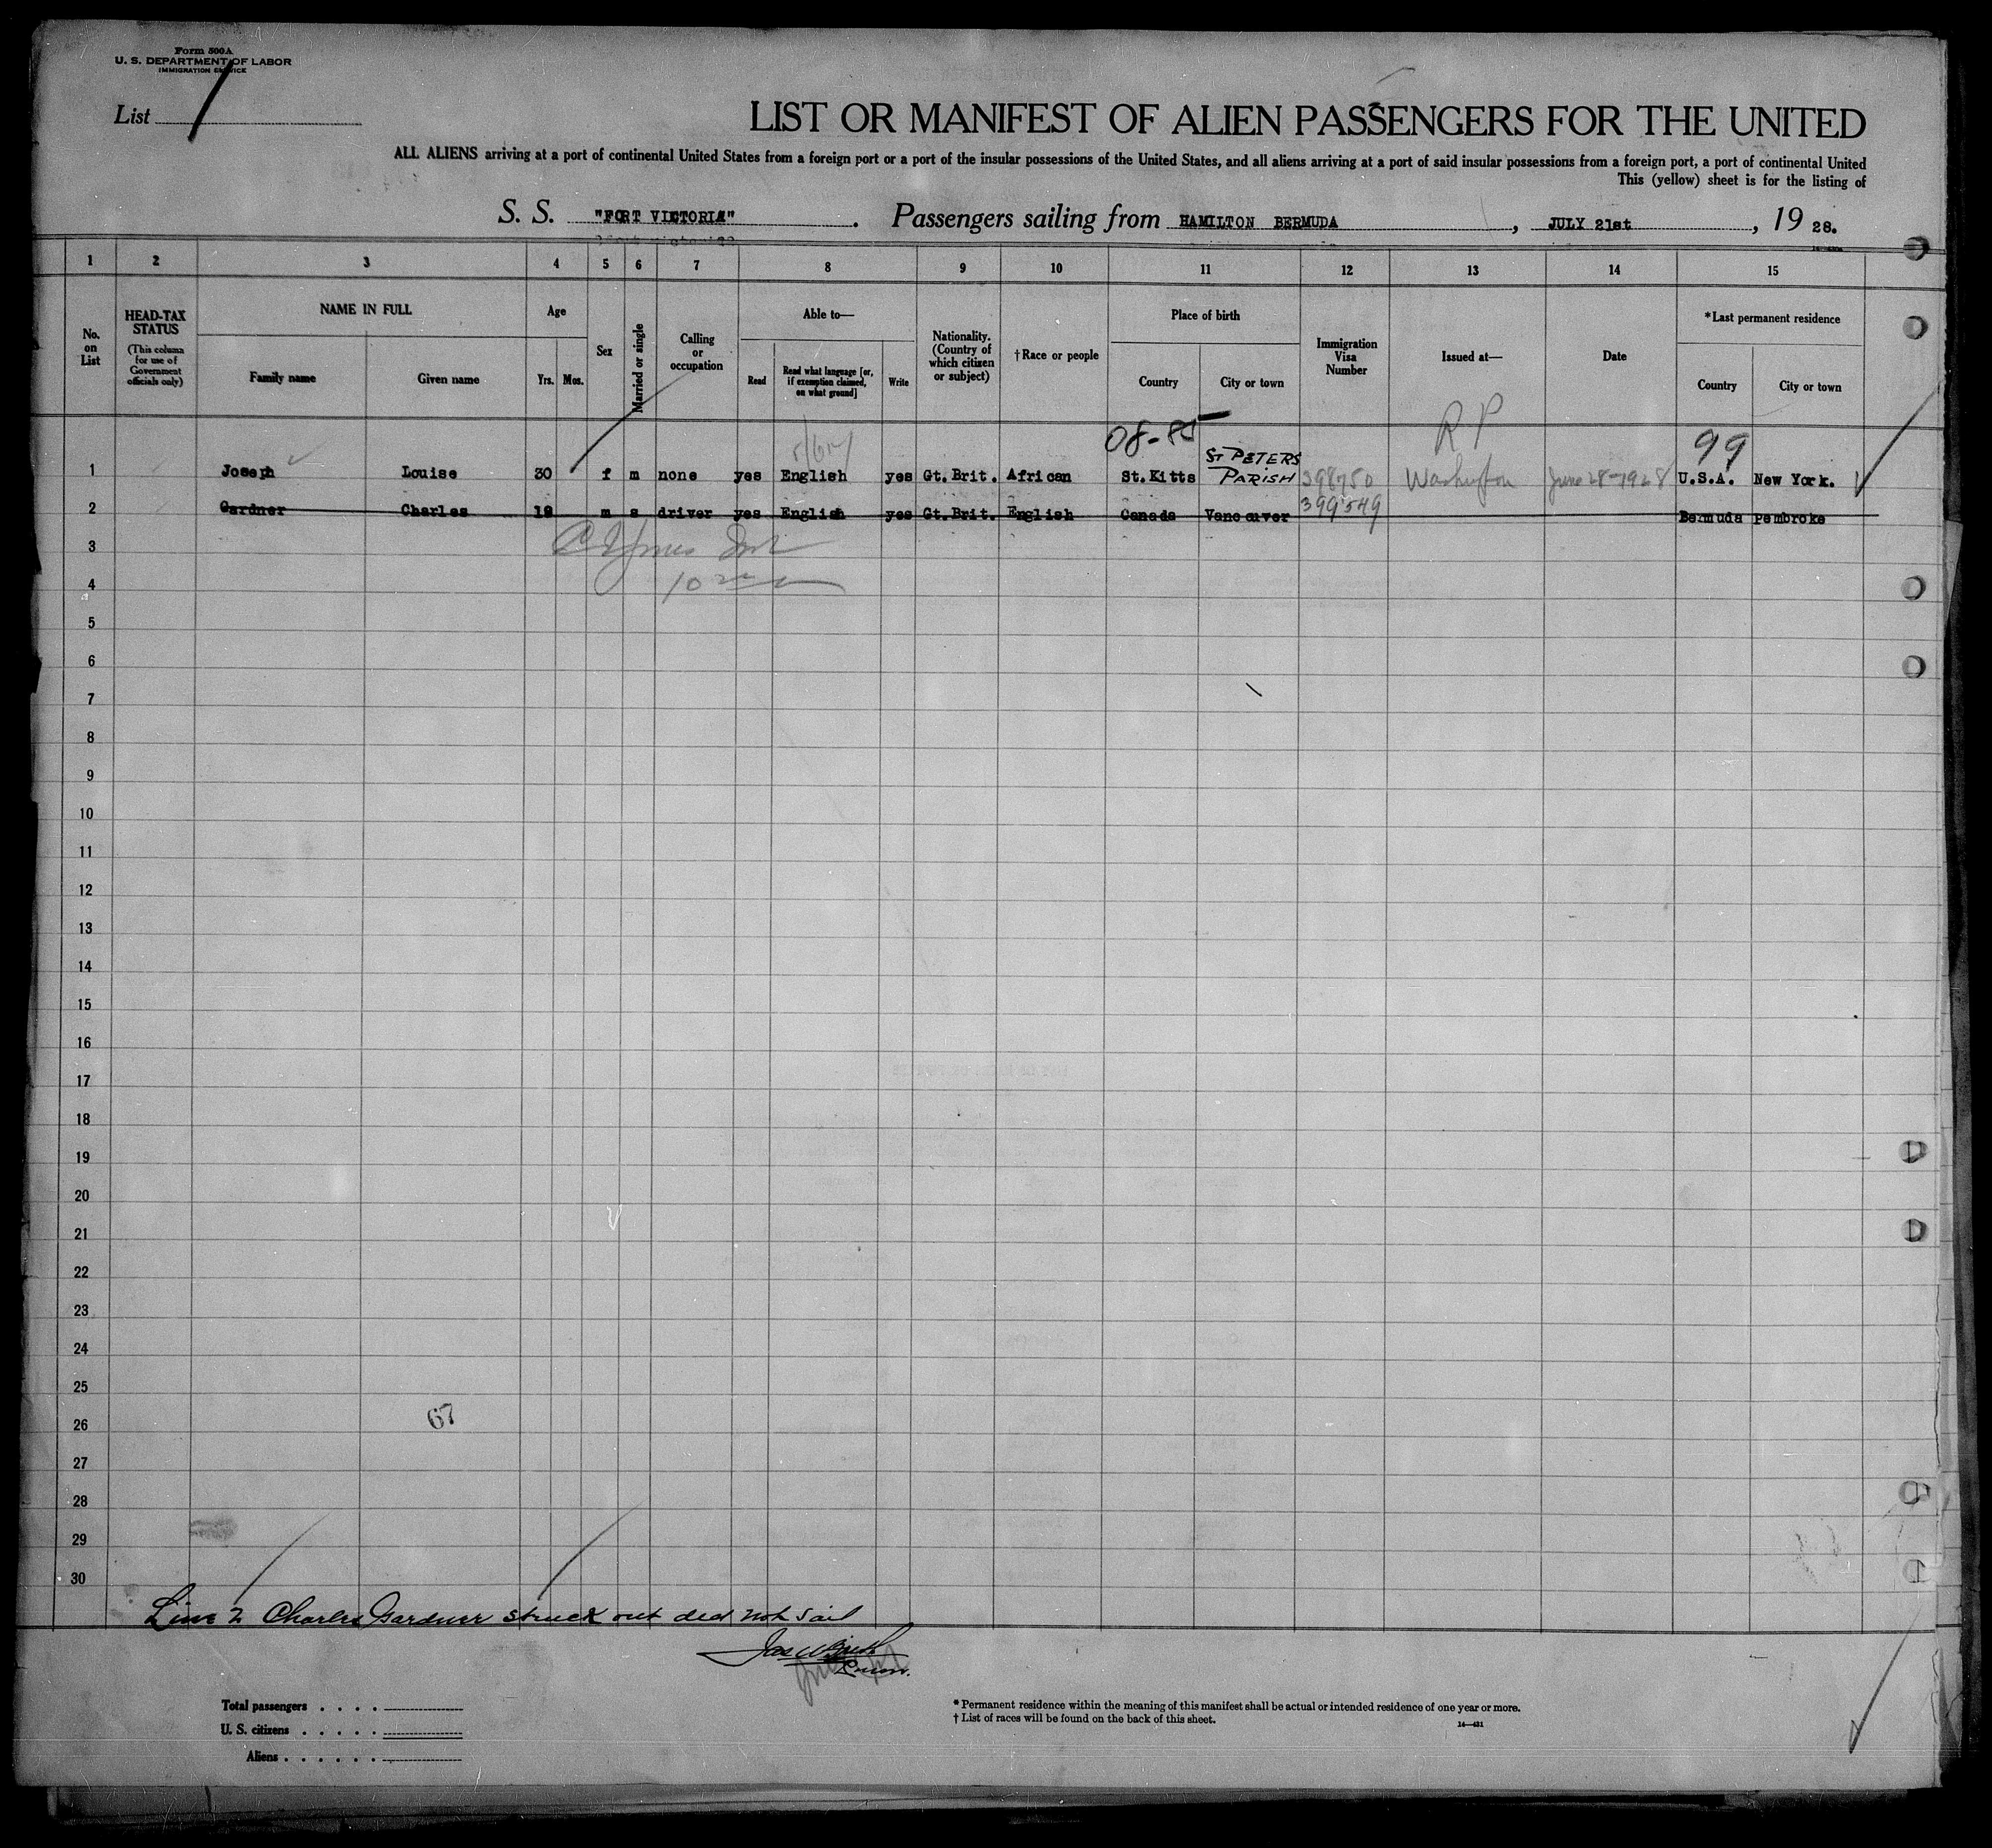 Form 500A
U. S. DEPARTMENT OF LABOR
IMMIGRATION SERVICE
List 1
LIST OR MANIFEST OF ALIEN PASSENGERS FOR THE UNITED
ALL ALIENS arriving at a port of continental United States from a foreign port or a port of the insular possessions of the United States, and all aliens arriving at a port of said insular possessions from a foreign port, a port of continental United
This (yellow) sheet is for the listing of
S. S. "FORT VICTORIA". Passengers sailing from HAMILTON BERMUDA, JULY 21st, 19 28.
1 2 3 4 5 6 7 8 9 10 11 12 13 14 15
No. on List
HEAD-TAX STATUS
(This column for use of Government officials only)
NAME IN FULL
Family name
Given name
Age
Yrs.
Mos.
Sex
Married or single
Calling or occupation
Able to—
Read
Read what language [or, if exemption claimed, on what ground]
Write
Nationality. (Country of which citizen or subject)
† Race or people
Place of birth
Country
City or town
Immigration Visa Number
Issued at—
Date
*Last permanent residence
Country
City or town
R P
08-85
99
1 Joseph Louise 30 f m none yes English yes Gt.Brit. African St.Kitts ST PETERS PARISH 398750 Washington June 28-1928 U.S.A. New York.
2 Gardner Charles 19 m s driver yes English yes Gt.Brit. English Canada Vancouver 399549 Bermuda Pembroke
3
4
5
6
7
8
9
10
11
12
13
14
15
16
17
18
19
20
21
22
23
24
25
26
67
27
28
29
30
Line 2 Charles Gardner struck out did not sail
Total passengers . . . .
U. S. citizens . . . . .
Aliens . . . . . .
* Permanent residence within the meaning of this manifest shall be actual or intended residence of one year or more.
† List of races will be found on the back of this sheet.
14—431